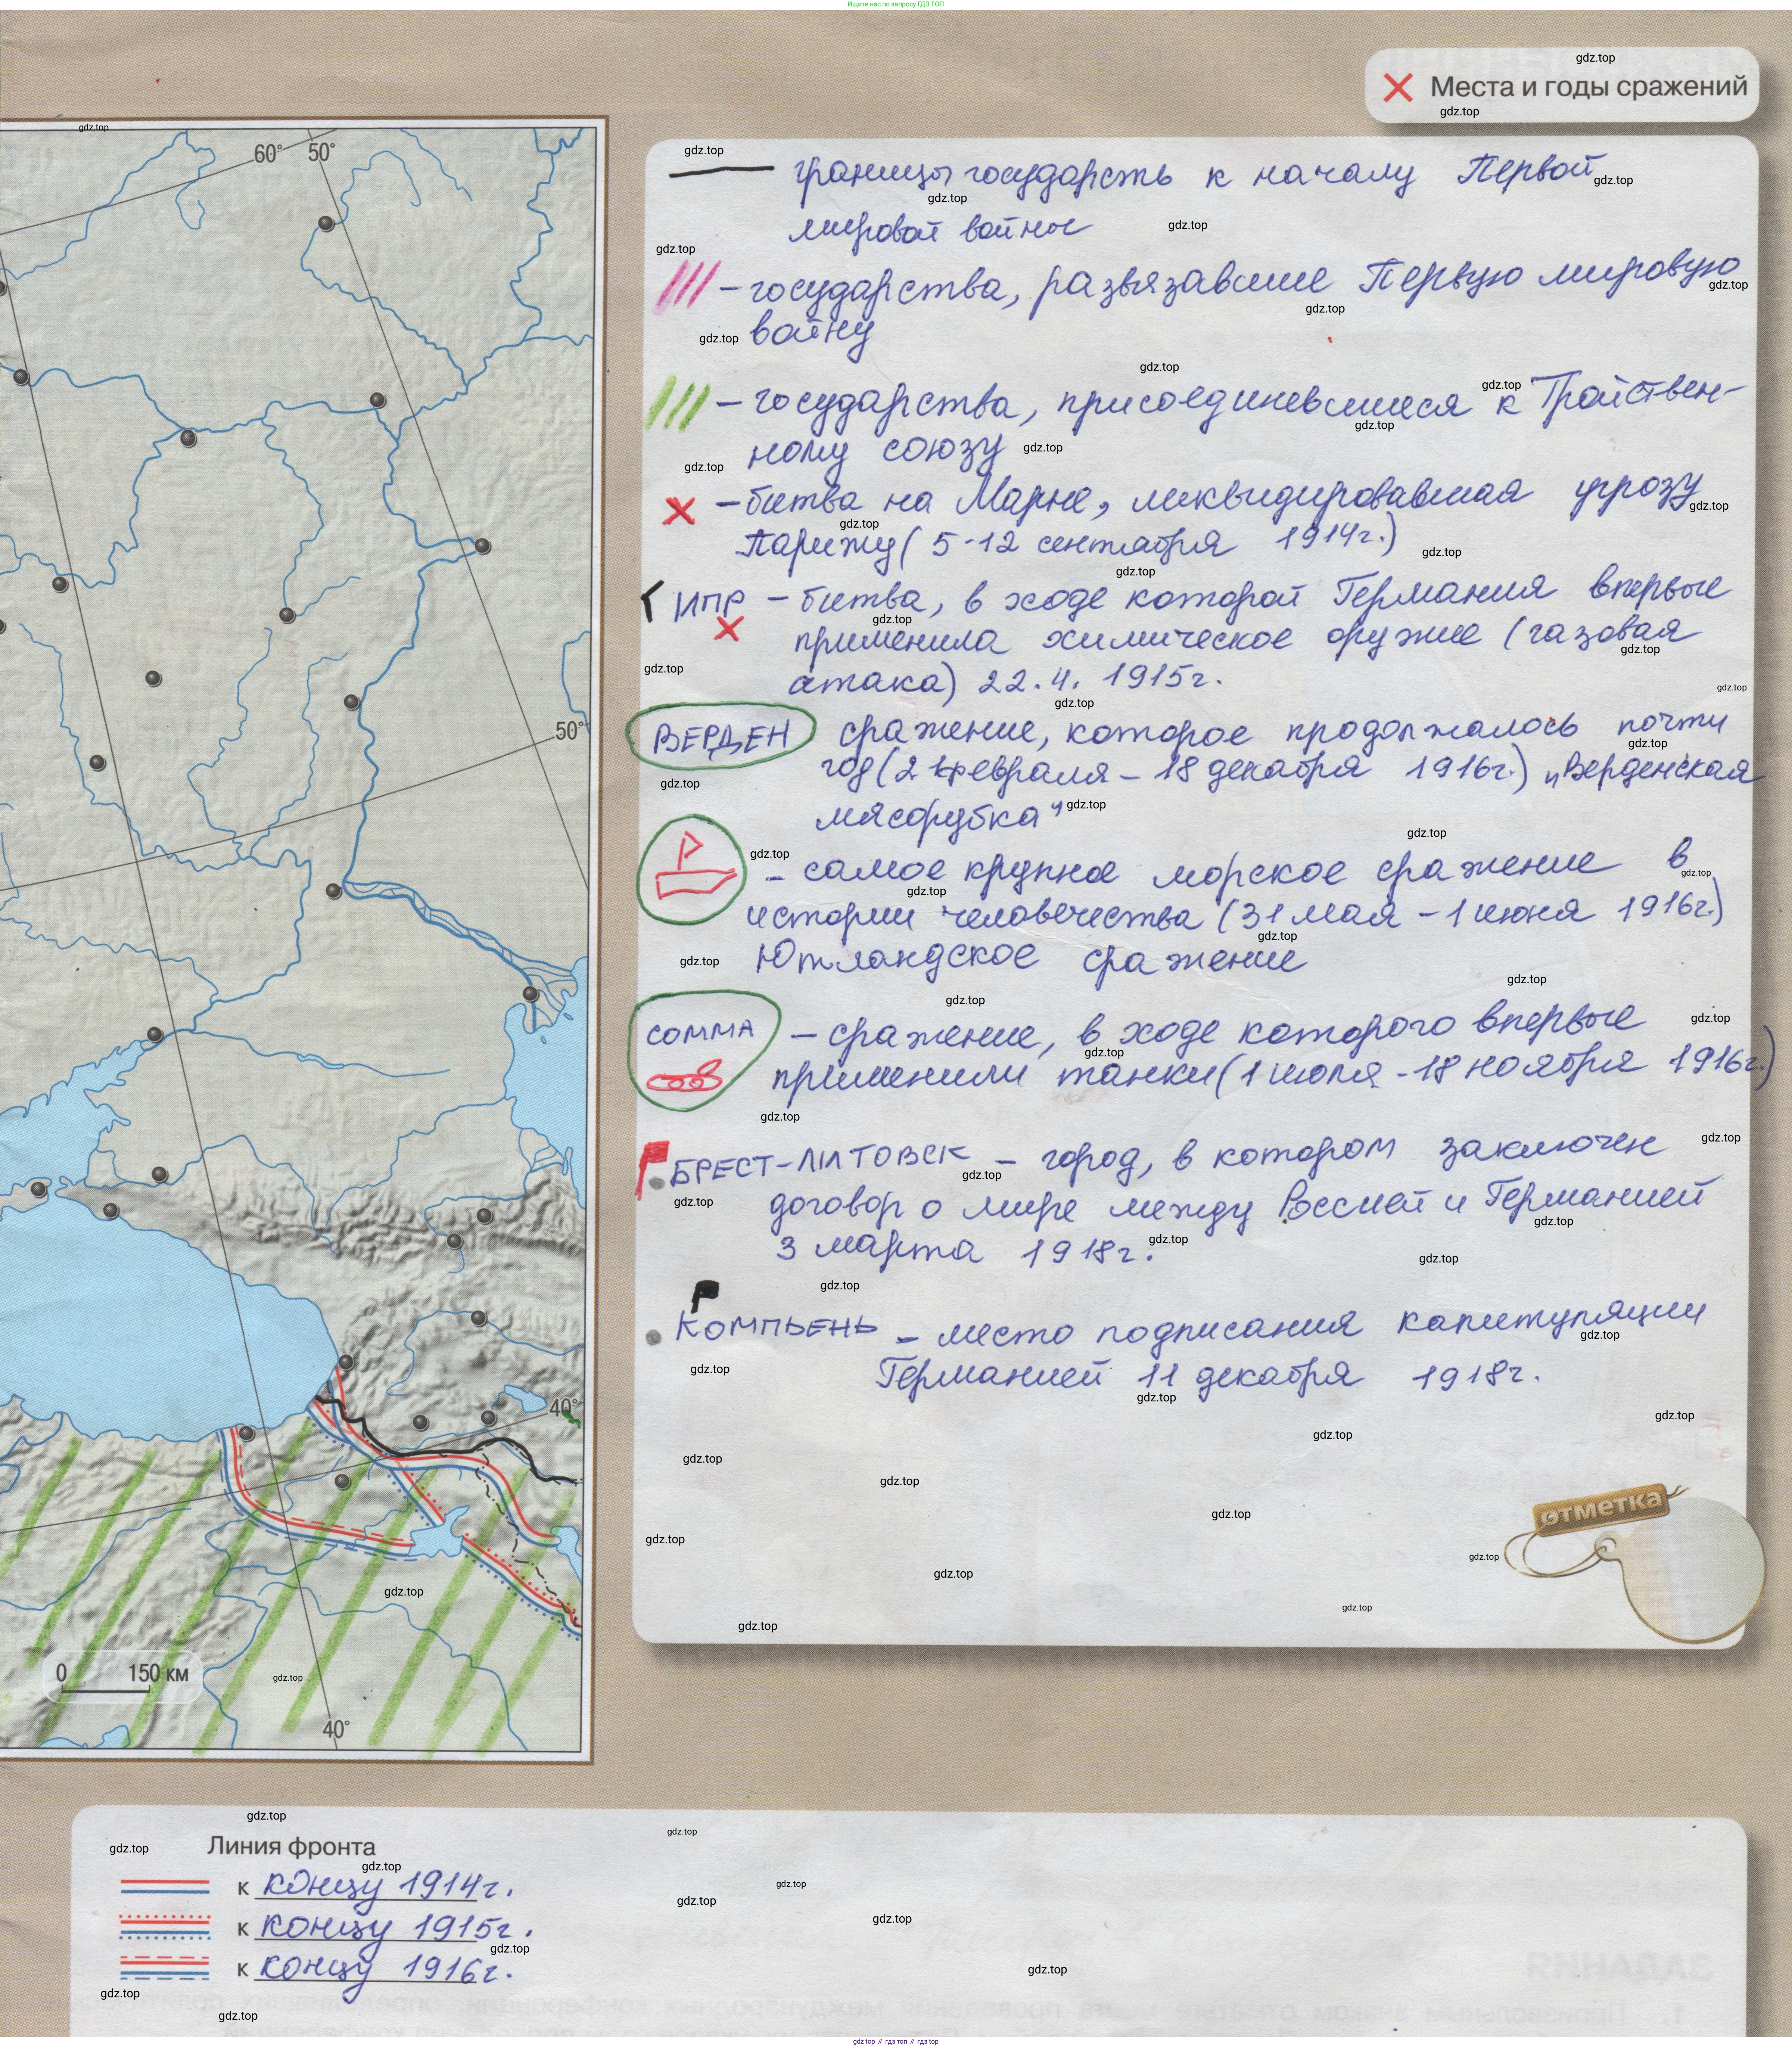 Ищите нас по запросу ГДЗ ТОП
Места и годы сражений
границы государств к началу Первой
мировой войны
– государства, развязавшие Первую мировую
войну
– государства, присоединевшиеся к Тройствен-
ному союзу
– битва на Марне, ликвидировавшая угрозу
Парижу (5-12 сентября 1914г.)
ИПР – битва, в ходе которой Германия впервые
применила химическое оружие (газовая
атака) 22.4. 1915г.
ВЕРДЕН сражение, которое продолжалось почти
год (21 февраля – 18 декабря 1916г.) „Верденская
мясорубка"
– самое крупное морское сражение в
истории человечества (31 мая – 1 июня 1916г.)
Ютландское сражение
СОММА – сражение, в ходе которого впервые
применили танки (1 июля - 18 ноября 1916г.)
БРЕСТ-ЛИТОВСК – город, в котором заключен
договор о мире между Россией и Германией
3 марта 1918г.
КОМПЬЕНЬ – место подписания капитуляции
Германией 11 декабря 1918г.
отметка
60° 50°
50°
40°
0 150 км
40°
Линия фронта
к концу 1914г.
к концу 1915г.
к концу 1916г.
gdz.top
gdz top // гдз топ // гдз top